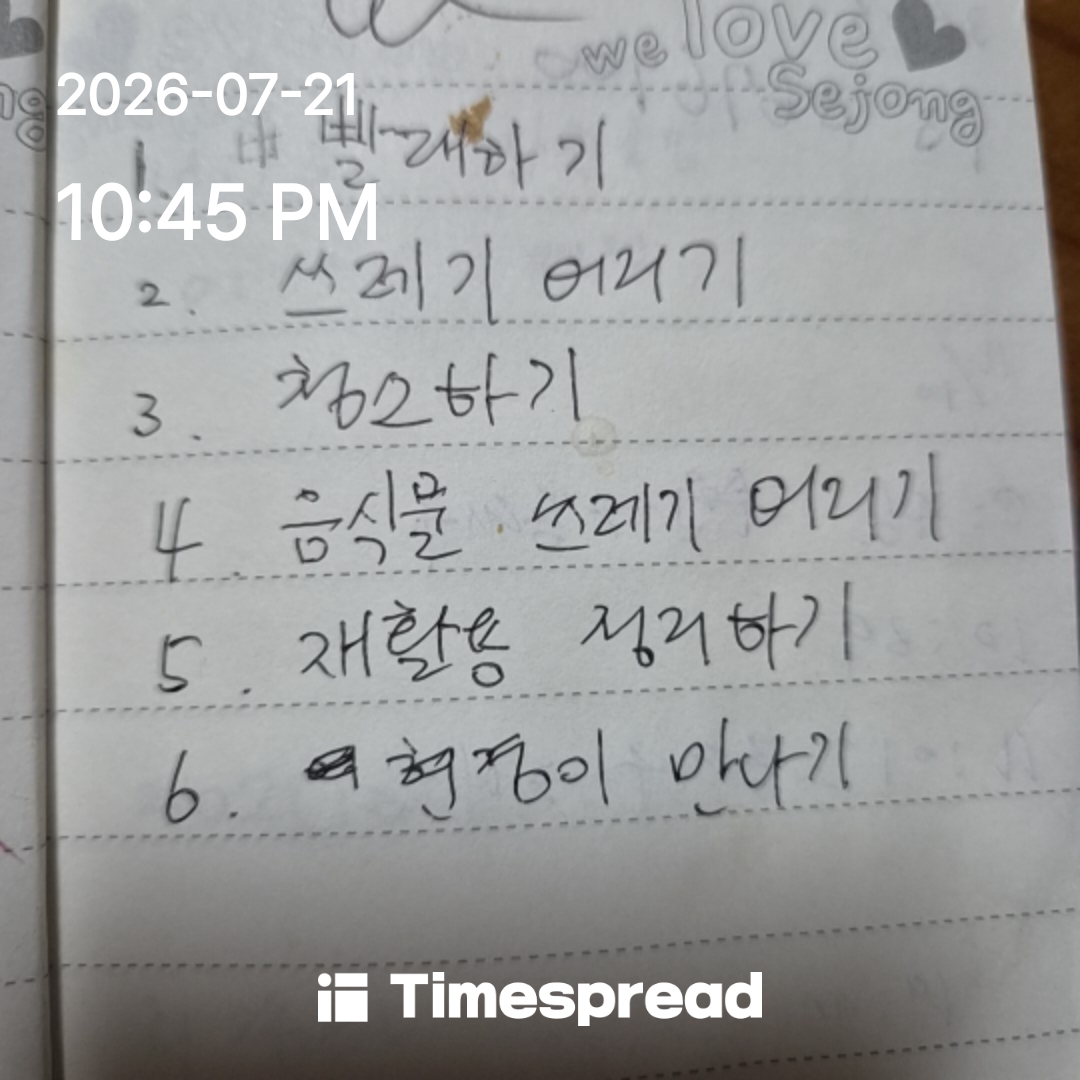 we love
Sejong
2026-07-21
1. 빨래하기
10:45 PM
2. 쓰레기 버리기
3. 청소하기
4. 음식물 쓰레기 버리기
5. 재활용 정리하기
6. 현정이 만나기
Timespread